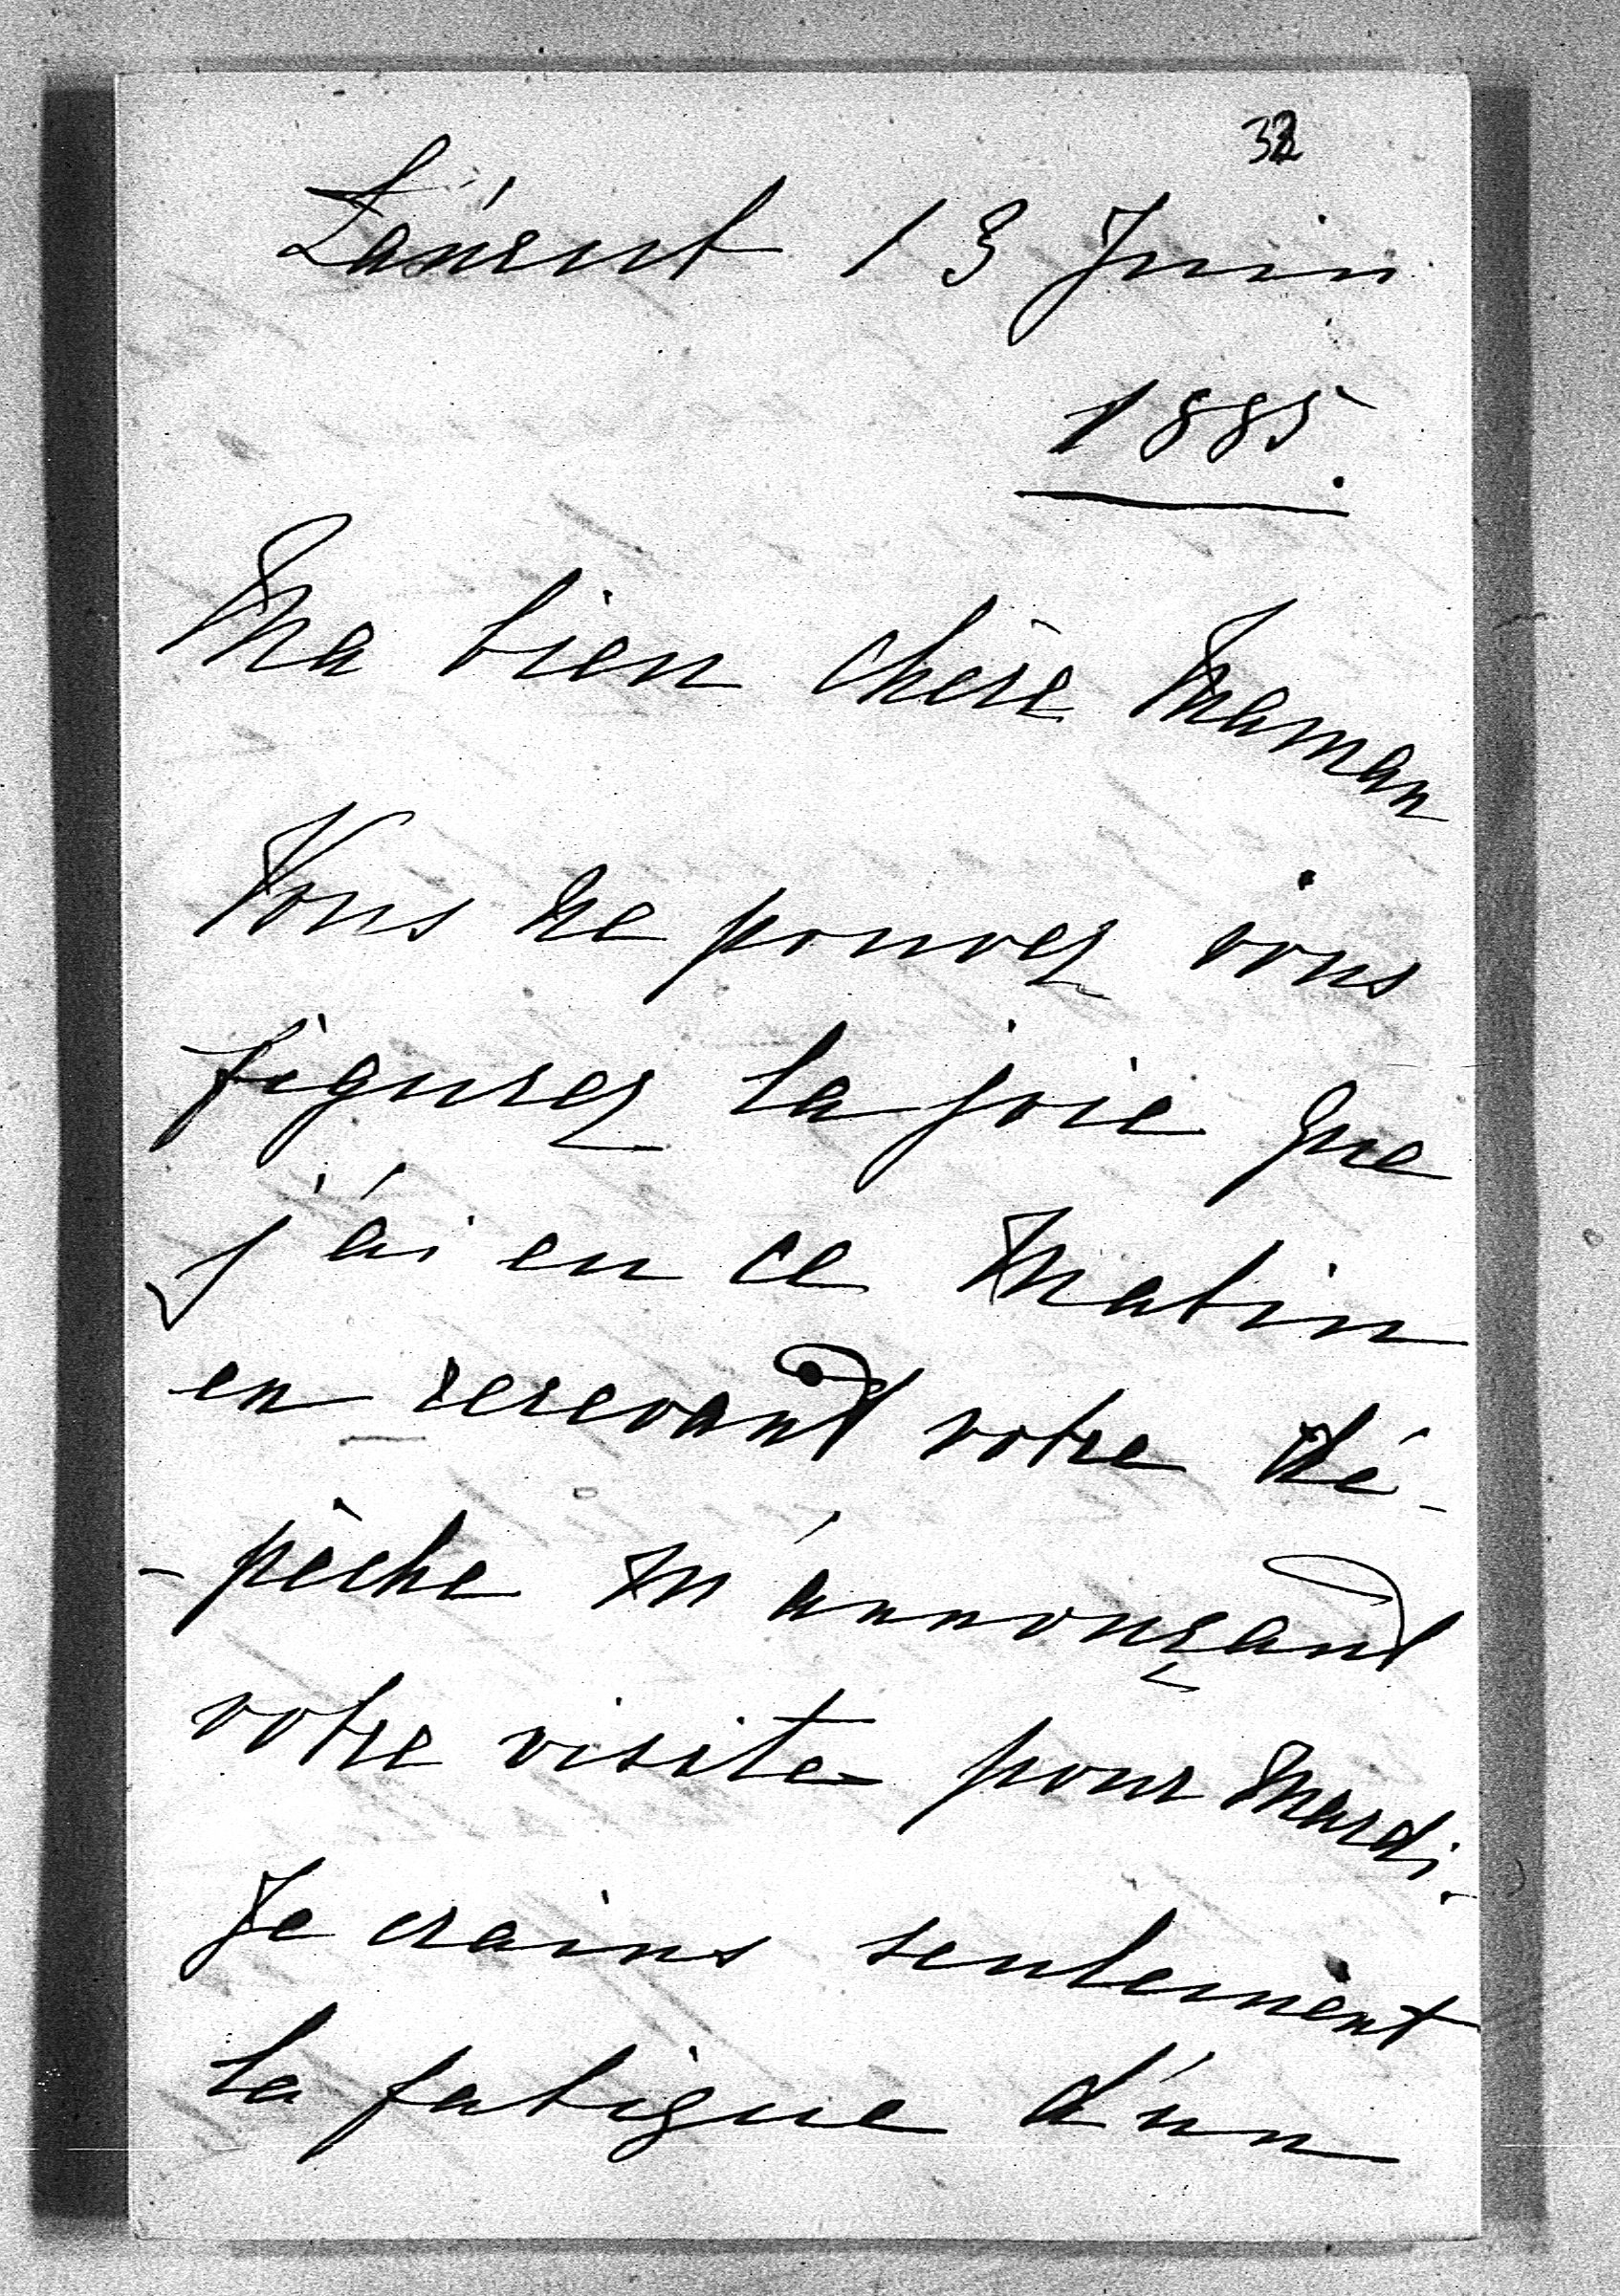 32
Laurent 13 Juin
1885.
Ma bien chère Maman
Vous ne pouvez vous
figurez la joie que
j'ai eu ce matin
en recevant votre dé-
-pèche m'annonçant
votre visite pour mardi.
Je crains seulement
la fatigue d'un